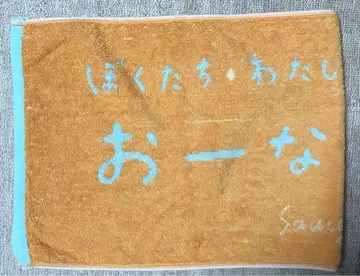 ぼくたち・わたし
おーな
Sauce